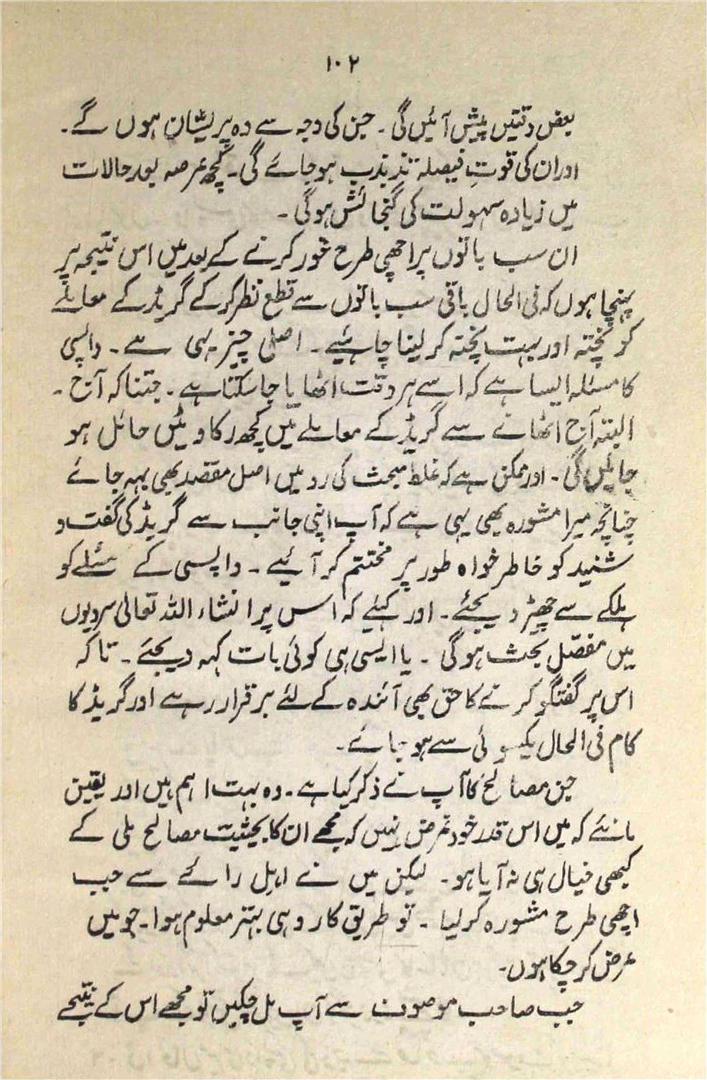 ۱۰۲
بعض دقتیں پیش آئیں گی۔ جن کی وجہ سے وہ پریشان ہوں گے۔
اور ان کی قوتِ فیصلہ تذبذب ہو جائے گی۔ کچھ عرصہ بعد حالات
میں زیادہ سہولت کی گنجائش ہوگی۔
ان سب باتوں پر اچھی طرح غور کرنے کے بعد میں اس نتیجہ پر
پہنچا ہوں کہ فی الحال باقی سب باتوں سے قطع نظر کر کے گریڈ کے معاملے
کو پختہ اور بہت پختہ کر لینا چاہئیے۔ اصلی چیز یہی ہے۔ واپسی
کا مسئلہ ایسا ہے کہ اسے ہر وقت اٹھایا جا سکتا ہے۔ جتنا کہ آج۔
البتہ آج اٹھانے سے گریڈ کے معاملے میں کچھ رکاوٹیں حائل ہو
جائیں گی۔ اور ممکن ہے کہ غلط مبحث کی رو میں اصل مقصد بھی بہہ جائے
چنانچہ میرا مشورہ بھی یہی ہے کہ آپ اپنی جانب سے گریڈ کی گفت و
شنید کو خاطر خواہ طور پر مختتم کر آئیے۔ واپسی کے مسئلے کو
ہلکے سے چھیڑ دیجئے۔ اور کہئیے کہ اس پر انشاء اللہ تعالیٰ سردیوں
میں مفصّل بحث ہوگی۔ یا ایسی ہی کوئی بات کہہ دیجئے۔ تاکہ
اس پر گفتگو کرنے کا حق بھی آئندہ کے لئے برقرار رہے اور گریڈ کا
کام فی الحال یکسوئی سے ہو جائے۔
جن مصالح کا آپ نے ذکر کیا ہے۔ وہ بہت اہم ہیں اور یقین
مانئے کہ میں اس قدر خود غرض نہیں کہ مجھے ان کا بحیثیت مصالح ملی کے
کبھی خیال ہی نہ آیا ہو۔ لیکن میں نے اہل رائے سے جب
اچھی طرح مشورہ کر لیا۔ تو طریق کار وہی بہتر معلوم ہوا۔ جو میں
عرض کر چکا ہوں۔
جب صاحب موصوف سے آپ مل چکیں تو مجھے اس کے نتیجے